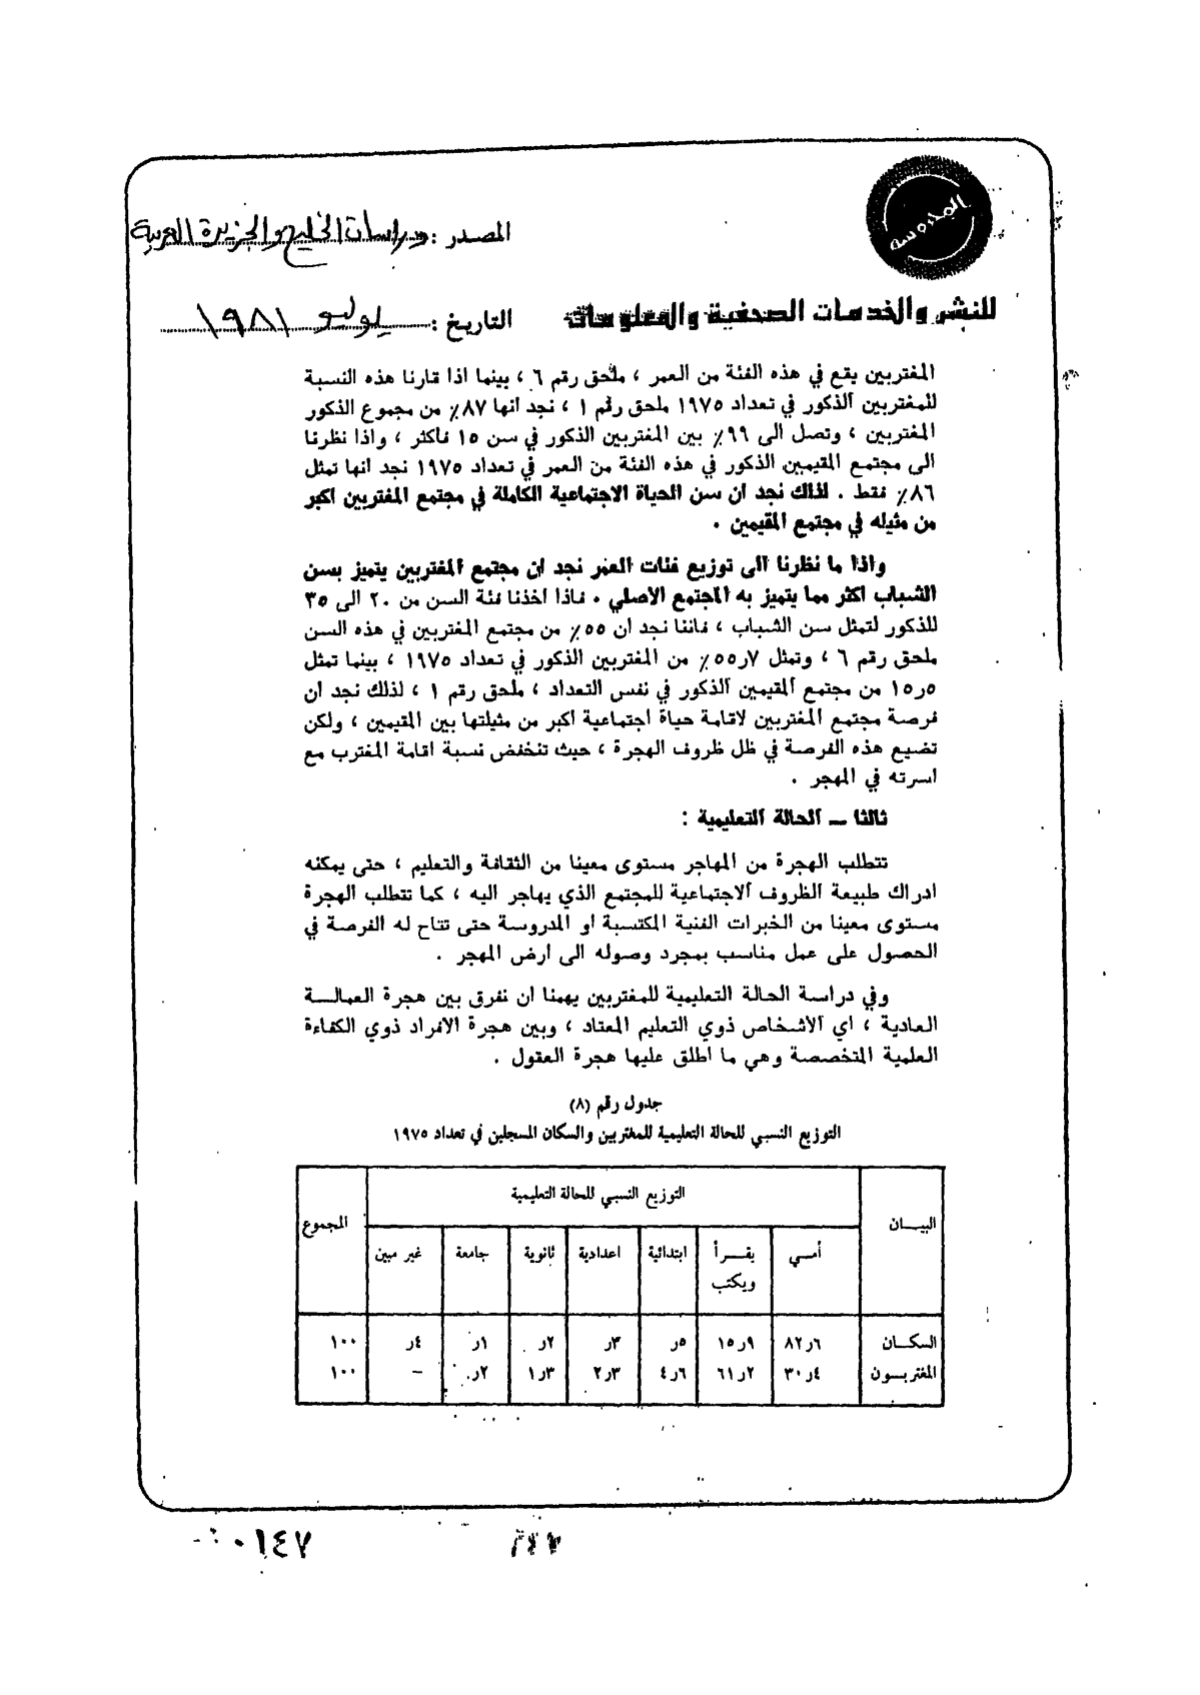 المحروسة
المصدر : دراسات الخليج والجزيرة العربية
للنشر والخدمات الصحفية والمعلومات
التاريخ : يوليو ١٩٨١
المغتربين يقع في هذه الفئة من العمر ، ملحق رقم ٦ ، بينما اذا قارنا هذه النسبة
للمغتربين الذكور في تعداد ١٩٧٥ ملحق رقم ١ ، نجد انها ٨٧٪ من مجموع الذكور
المغتربين ، وتصل الى ٩٩٪ بين المغتربين الذكور في سن ١٥ فأكثر ، واذا نظرنا
الى مجتمع المقيمين الذكور في هذه الفئة من العمر في تعداد ١٩٧٥ نجد انها تمثل
٨٦٪ فقط . لذلك نجد ان سن الحياة الاجتماعية الكاملة في مجتمع المغتربين اكبر
من مثيله في مجتمع المقيمين .
واذا ما نظرنا الى توزيع فئات العمر نجد ان مجتمع المغتربين يتميز بسن
الشباب اكثر مما يتميز به المجتمع الاصلي . فاذا اخذنا فئة السن من ٢٠ الى ٣٥
للذكور لتمثل سن الشباب ، فاننا نجد ان ٥٥٪ من مجتمع المغتربين في هذه السن
ملحق رقم ٦ ، وتمثل ٧ر٥٥٪ من المغتربين الذكور في تعداد ١٩٧٥ ، بينما تمثل
٥ر١٥ من مجتمع المقيمين الذكور في نفس التعداد ، ملحق رقم ١ ، لذلك نجد ان
فرصة مجتمع المغتربين لاقامة حياة اجتماعية اكبر من مثيلتها بين المقيمين ، ولكن
تضيع هذه الفرصة في ظل ظروف الهجرة ، حيث تنخفض نسبة اقامة المغترب مع
اسرته في المهجر .
ثالثا ــ الحالة التعليمية :
تتطلب الهجرة من المهاجر مستوى معينا من الثقافة والتعليم ، حتى يمكنه
ادراك طبيعة الظروف الاجتماعية للمجتمع الذي يهاجر اليه ، كما تتطلب الهجرة
مستوى معينا من الخبرات الفنية المكتسبة او المدروسة حتى تتاح له الفرصة في
الحصول على عمل مناسب بمجرد وصوله الى ارض المهجر .
وفي دراسة الحالة التعليمية للمغتربين يهمنا ان نفرق بين هجرة العمالـــة
العادية ، اي الاشخاص ذوي التعليم المعتاد ، وبين هجرة الافراد ذوي الكفاءة
العلمية المتخصصة وهي ما اطلق عليها هجرة العقول .
جدول رقم (٨)
التوزيع النسبي للحالة التعليمية للمغتربين والسكان المسجلين في تعداد ١٩٧٥
البيــان التوزيع النسبي للحالة التعليمية المجموع
أمــي يقــرأ ويكتب ابتدائية اعدادية ثانوية جامعة غير مبين
السكــان ٦ر٨٢ ٩ر١٥ ٥ر ٣ر ٢ر ١ر ٤ر ١٠٠
المغتربــون ٤ر٣٠ ٢ر٦١ ٦ر٤ ٣ر٢ ٣ر١ ٢ر –  ١٠٠
٠١٤٧